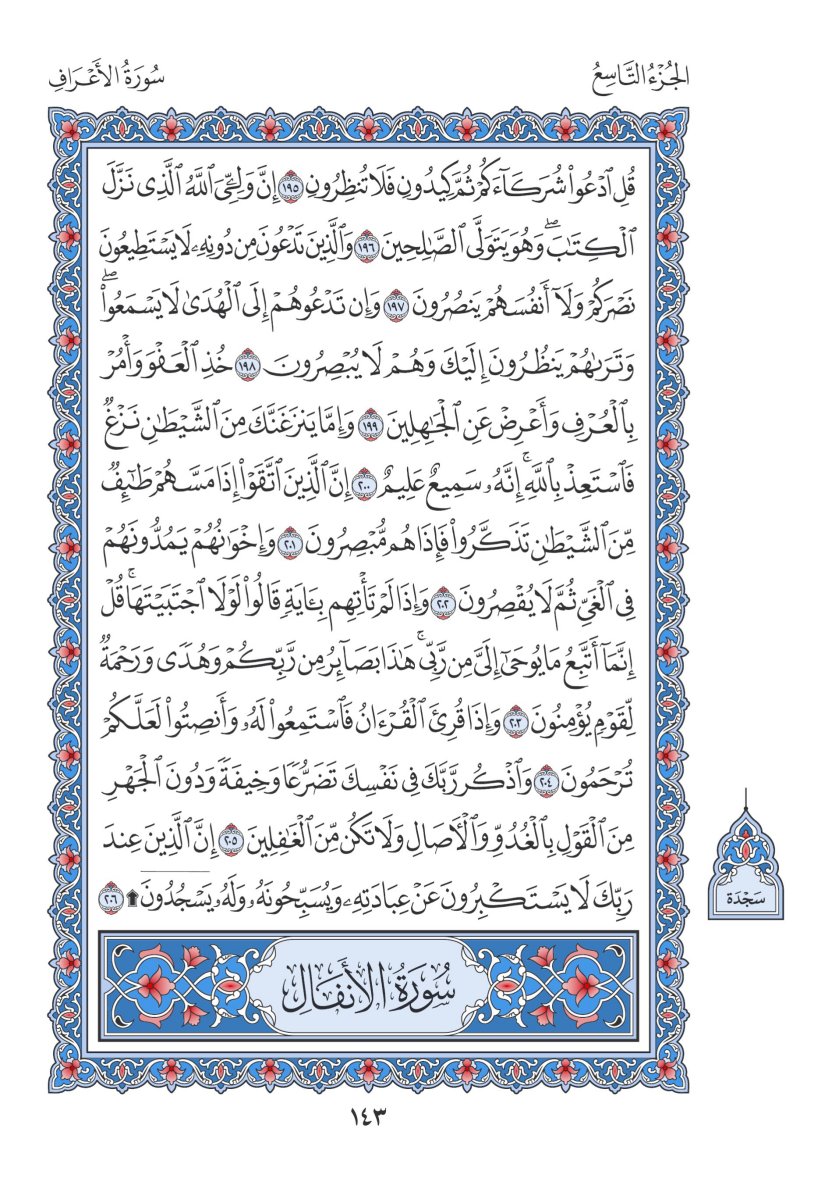 الجُزْءُ التَّاسِعُ
سُورَةُ الأَعْرَافِ
قُلِ ٱدْعُوا۟ شُرَكَآءَكُمْ ثُمَّ كِيدُونِ فَلَا تُنظِرُونِ ١٩٥ إِنَّ وَلِـِّۧىَ ٱللَّهُ ٱلَّذِى نَزَّلَ
ٱلْكِتَـٰبَ ۖ وَهُوَ يَتَوَلَّى ٱلصَّـٰلِحِينَ ١٩٦ وَٱلَّذِينَ تَدْعُونَ مِن دُونِهِۦ لَا يَسْتَطِيعُونَ
نَصْرَكُمْ وَلَآ أَنفُسَهُمْ يَنصُرُونَ ١٩٧ وَإِن تَدْعُوهُمْ إِلَى ٱلْهُدَىٰ لَا يَسْمَعُوا۟ ۖ
وَتَرَىٰهُمْ يَنظُرُونَ إِلَيْكَ وَهُمْ لَا يُبْصِرُونَ ١٩٨ خُذِ ٱلْعَفْوَ وَأْمُرْ
بِٱلْعُرْفِ وَأَعْرِضْ عَنِ ٱلْجَـٰهِلِينَ ١٩٩ وَإِمَّا يَنزَغَنَّكَ مِنَ ٱلشَّيْطَـٰنِ نَزْغٌ
فَٱسْتَعِذْ بِٱللَّهِ ۚ إِنَّهُۥ سَمِيعٌ عَلِيمٌ ٢٠٠ إِنَّ ٱلَّذِينَ ٱتَّقَوْا۟ إِذَا مَسَّهُمْ طَـٰٓئِفٌ
مِّنَ ٱلشَّيْطَـٰنِ تَذَكَّرُوا۟ فَإِذَا هُم مُّبْصِرُونَ ٢٠١ وَإِخْوَٰنُهُمْ يَمُدُّونَهُمْ
فِى ٱلْغَىِّ ثُمَّ لَا يُقْصِرُونَ ٢٠٢ وَإِذَا لَمْ تَأْتِهِم بِـَٔايَةٍ قَالُوا۟ لَوْلَا ٱجْتَبَيْتَهَا ۚ قُلْ
إِنَّمَآ أَتَّبِعُ مَا يُوحَىٰٓ إِلَىَّ مِن رَّبِّى ۚ هَـٰذَا بَصَآئِرُ مِن رَّبِّكُمْ وَهُدًى وَرَحْمَةٌ
لِّقَوْمٍ يُؤْمِنُونَ ٢٠٣ وَإِذَا قُرِئَ ٱلْقُرْءَانُ فَٱسْتَمِعُوا۟ لَهُۥ وَأَنصِتُوا۟ لَعَلَّكُمْ
تُرْحَمُونَ ٢٠٤ وَٱذْكُر رَّبَّكَ فِى نَفْسِكَ تَضَرُّعًا وَخِيفَةً وَدُونَ ٱلْجَهْرِ
مِنَ ٱلْقَوْلِ بِٱلْغُدُوِّ وَٱلْـَٔاصَالِ وَلَا تَكُن مِّنَ ٱلْغَـٰفِلِينَ ٢٠٥ إِنَّ ٱلَّذِينَ عِندَ
رَبِّكَ لَا يَسْتَكْبِرُونَ عَنْ عِبَادَتِهِۦ وَيُسَبِّحُونَهُۥ وَلَهُۥ يَسْجُدُونَ ۩ ٢٠٦
سَجْدَة
سُورَةُ الأَنفَالِ
١٤٣